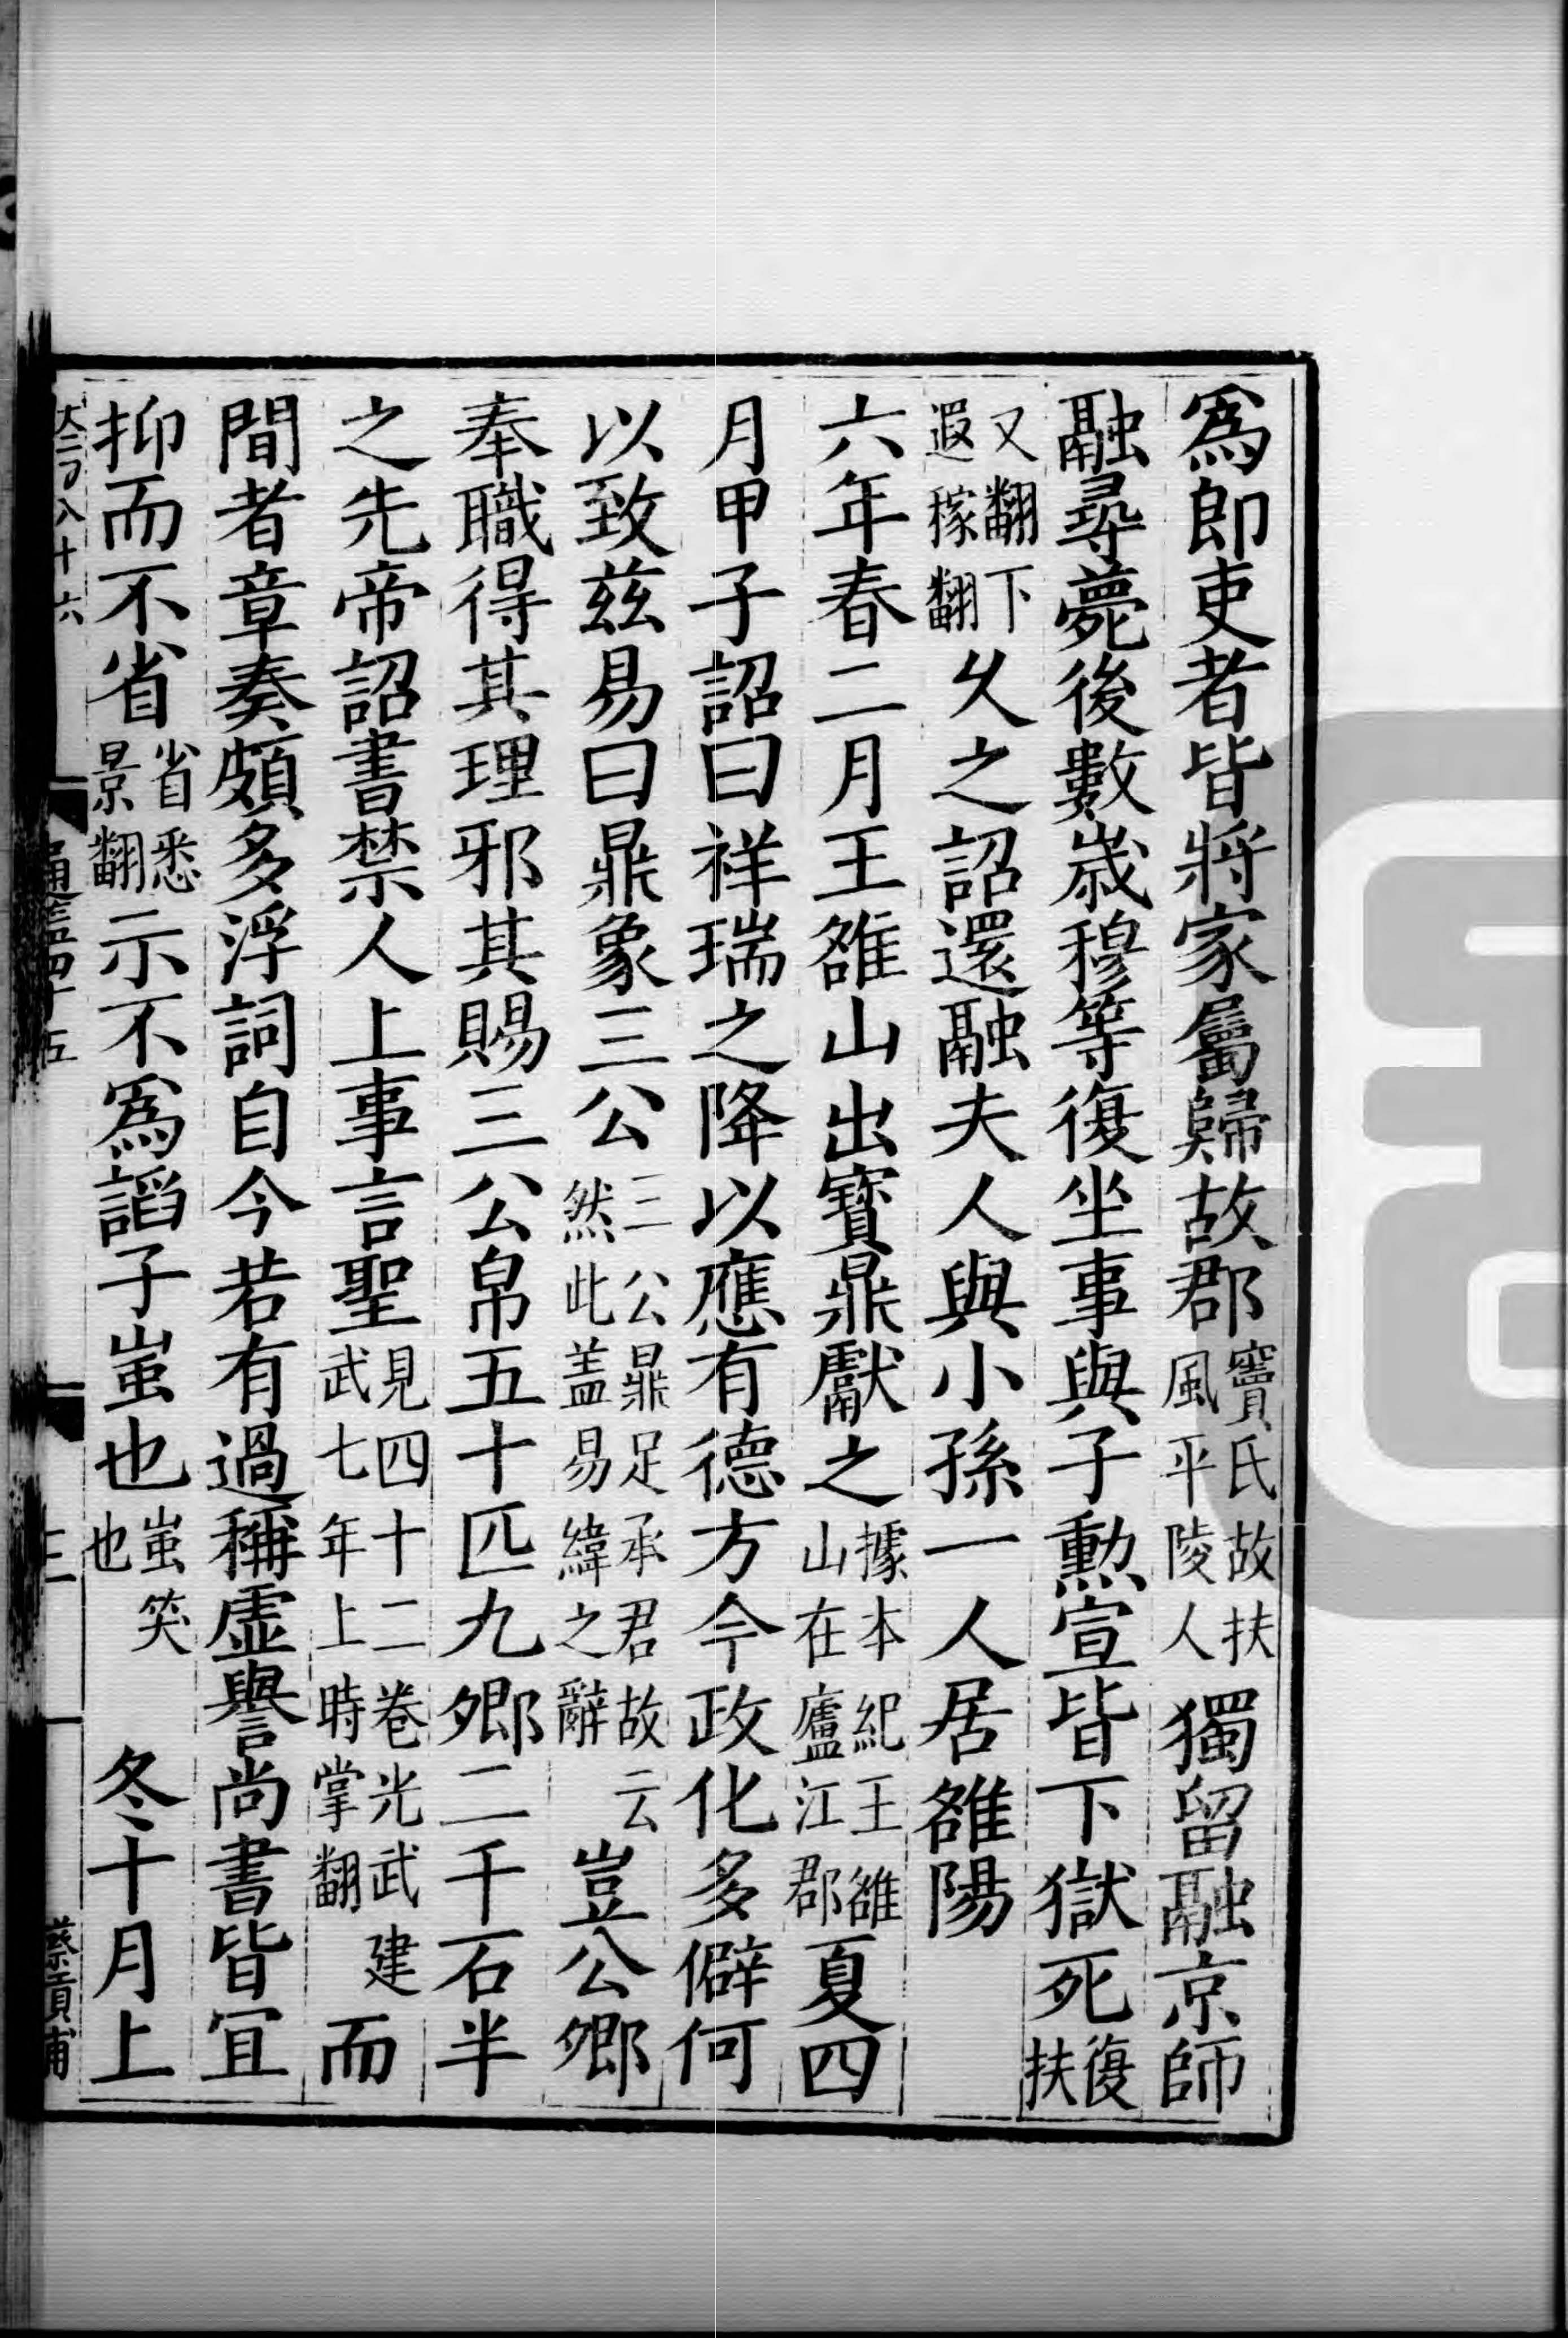 爲郎吏者皆將家屬歸故郡竇氏故扶風平陵人獨留融京師
融尋薨後數歲穆等復坐事與子勲宣皆下獄死復扶
又翻下遐稼翻久之詔還融夫人與小孫一人居雒陽
六年春二月王雒山出寶鼎獻之據本紀王雒山在廬江郡夏四
月甲子詔曰祥瑞之降以應有德方今政化多僻何
以致茲易曰鼎象三公三公鼎足承君故云然此盖易緯之辭豈公卿
奉職得其理邪其賜三公帛五十匹九卿二千石半
之先帝詔書禁人上事言聖見四十二卷光武建武七年上時掌翻而
間者章奏頗多浮詞自今若有過稱虛譽尚書皆宜
抑而不省省悉景翻示不爲謟子蚩也蚩笑也冬十月上
通鑑四十五
三